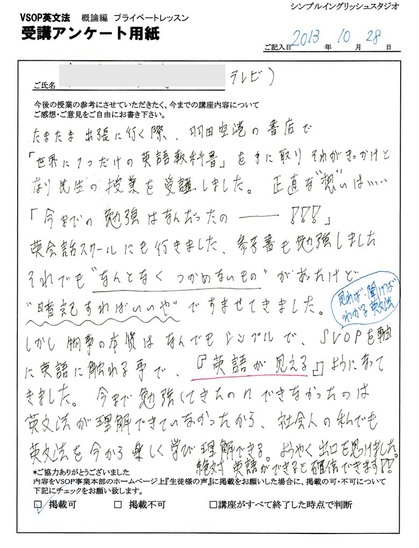 シンプルイングリッシュスタジオ
VSOP英文法 概論編 プライベートレッスン
受講アンケート用紙
ご記入日 2013年 10月 28日
ご氏名 テレビ)
今後の授業の参考にさせていただきたく、今までの講座内容について
ご感想・ご意見をご自由にお書き下さい。
たまたま出張に行く際、羽田空港の書店で
「世界に1つだけの英語教科書」を手に取りそれがきっかけと
なり先生の授業を受講しました。正直な"思い"は……
「今までの勉強はなんだったの――!!!」
英会話スクールにも行きました、参考書も勉強しました
それでも"なんとなくつかめないもの"があったけど
"暗記すればいいや"ですませてきました。
見れば、聞けば
わかる英文法
しかし物事の本質はなんでもシンプルで、SVOPを軸
に英語に触れる事で、『英語が見える』ようになって
きました。今まで勉強してきたのにできなかったのは
英文法が理解できていなかったから、社会人の私でも
英文法を今から楽しく学び理解できる。ようやく出口を見つけました。
絶対英語ができると確信できます!!
*ご協力ありがとうございました
内容をVSOP事業本部のホームページ上『生徒様の声』に掲載をお願いした場合に、掲載の可・不可について
下記にチェックをお願い致します。
☑掲載可 □掲載不可 □講座がすべて終了した時点で判断